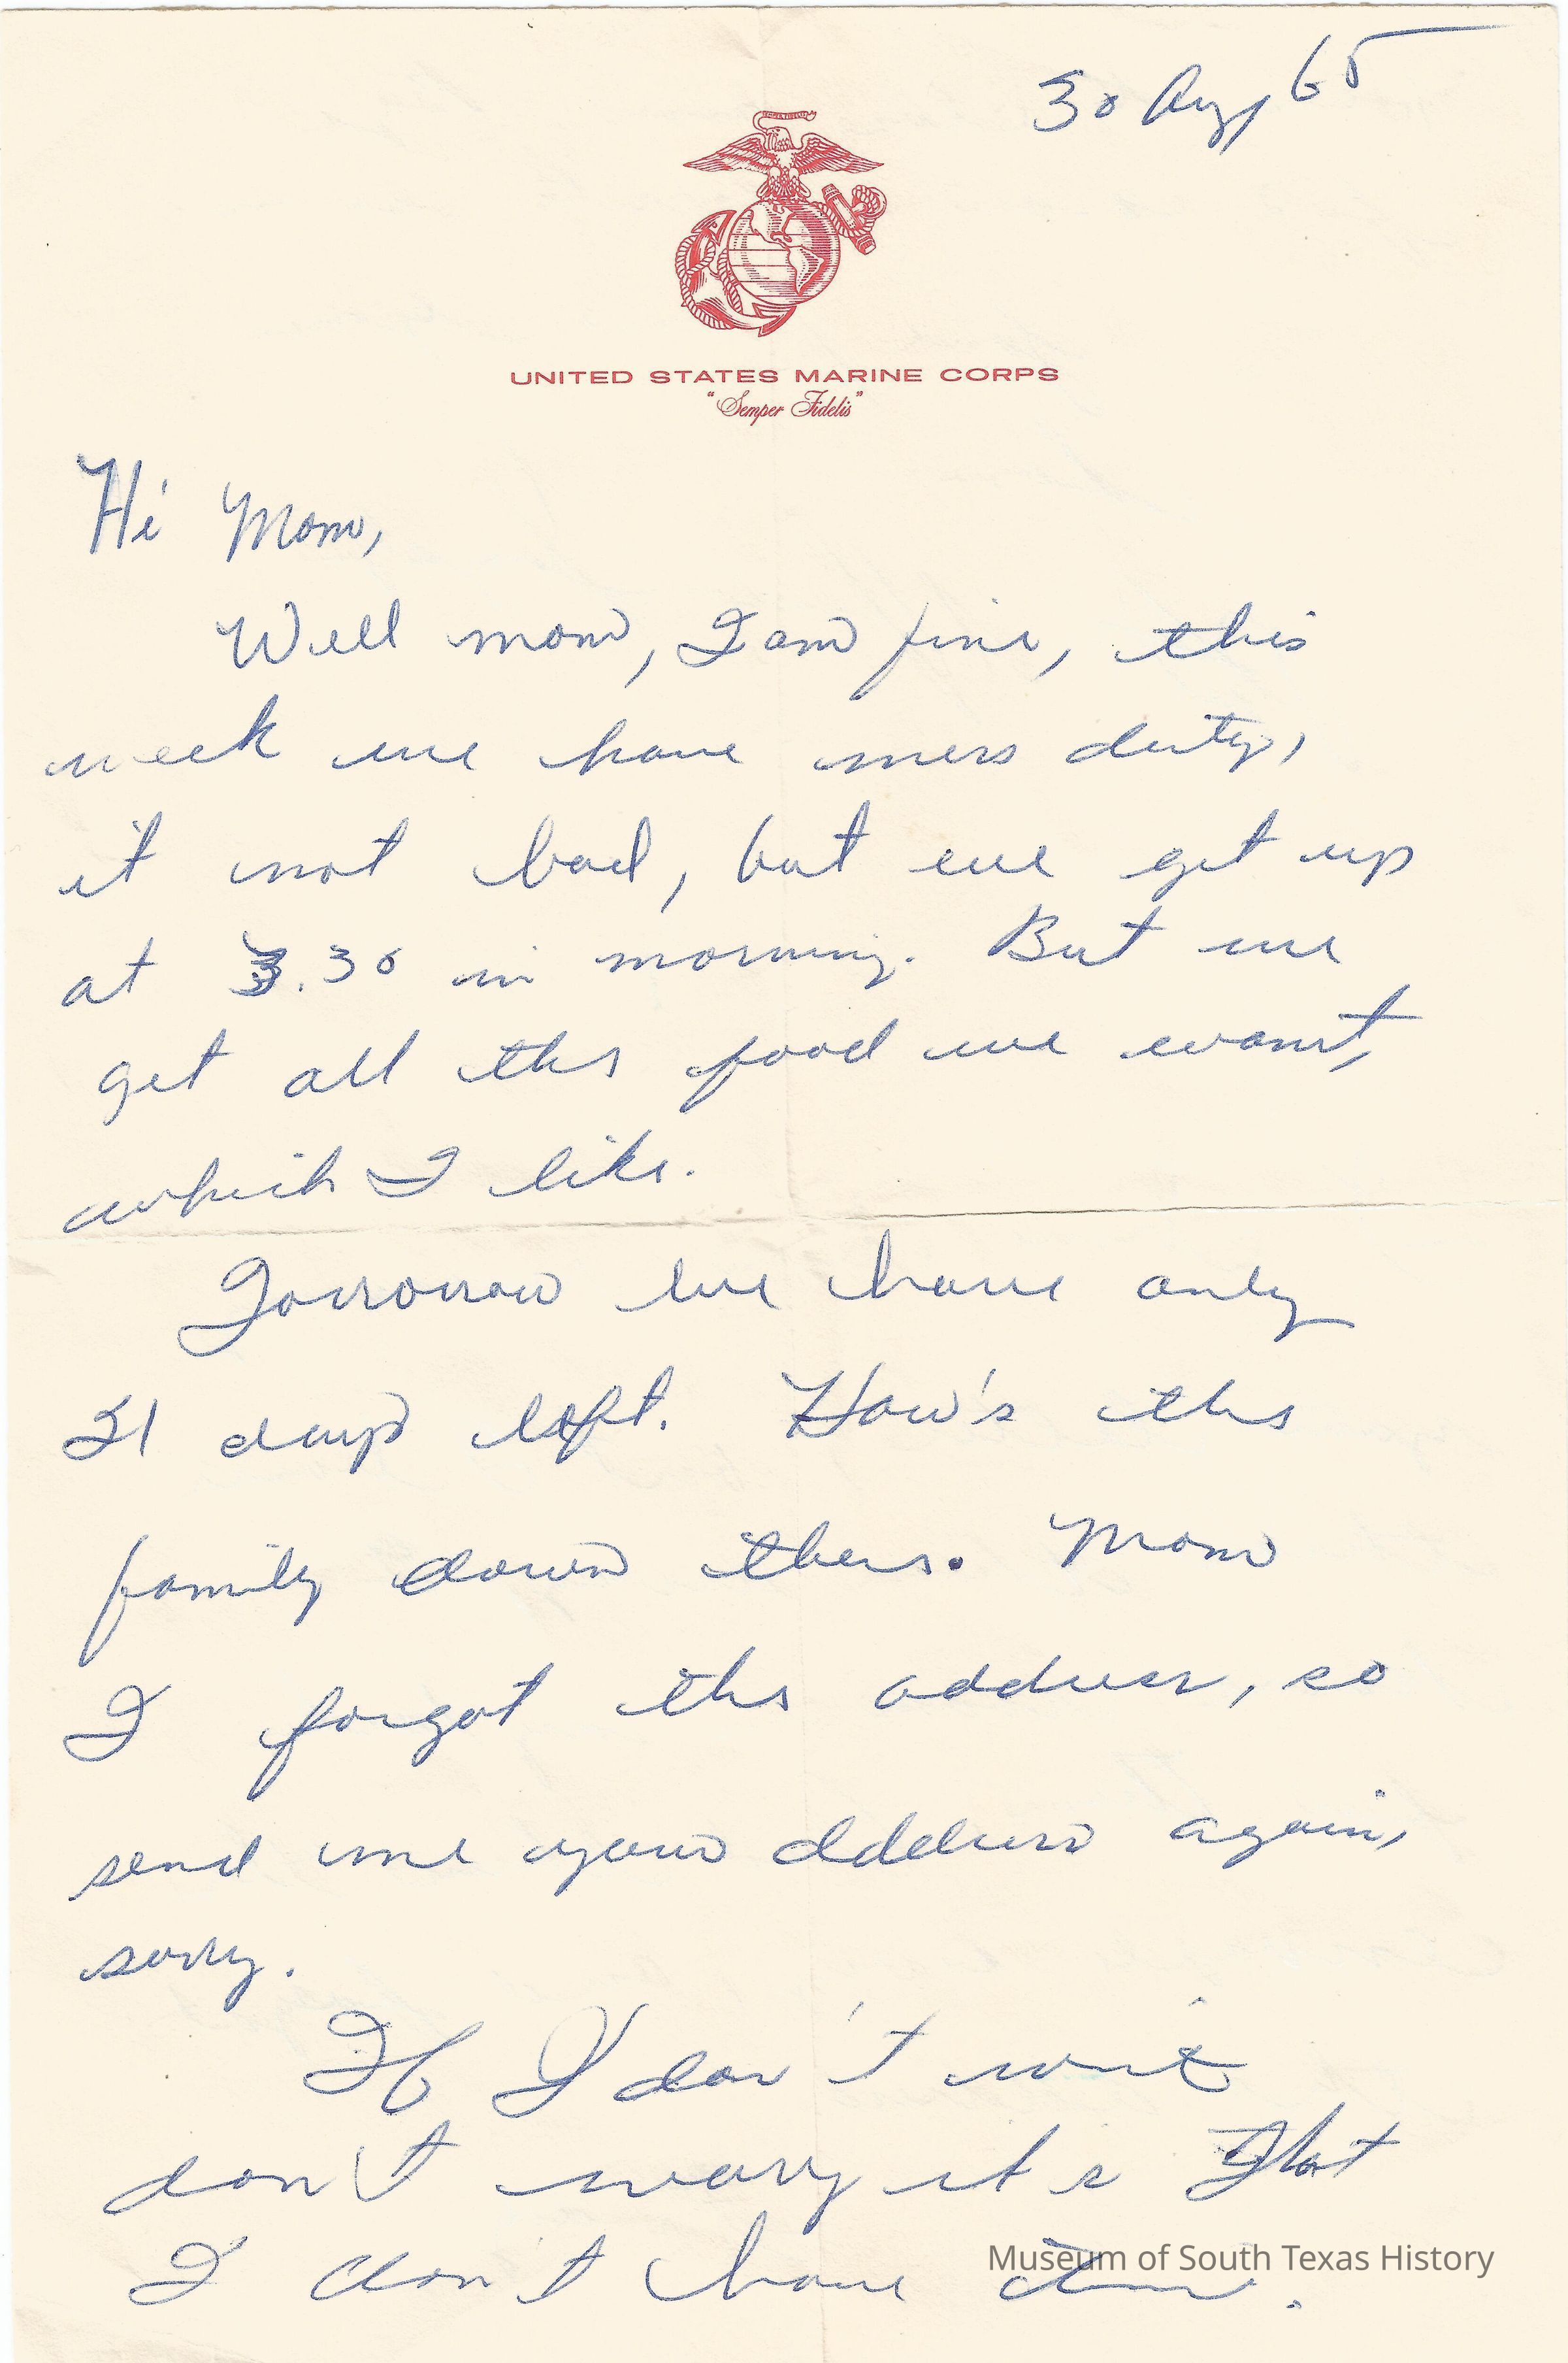 30 Aug, 65
UNITED STATES MARINE CORPS
"Semper Fidelis"
Hi Mom,
Well mom, I am fine, this
week we have mess duty,
it not bad, but we get up
at 3.30 in morning. But we
get all the food we want,
which I like.
Tomorrow we have only
21 days left. How's the
family down there. Mom
I forgot the address, so
send me your address again,
sorry.
If I don't write
don't worry it's that
I don't have time.
Museum of South Texas History